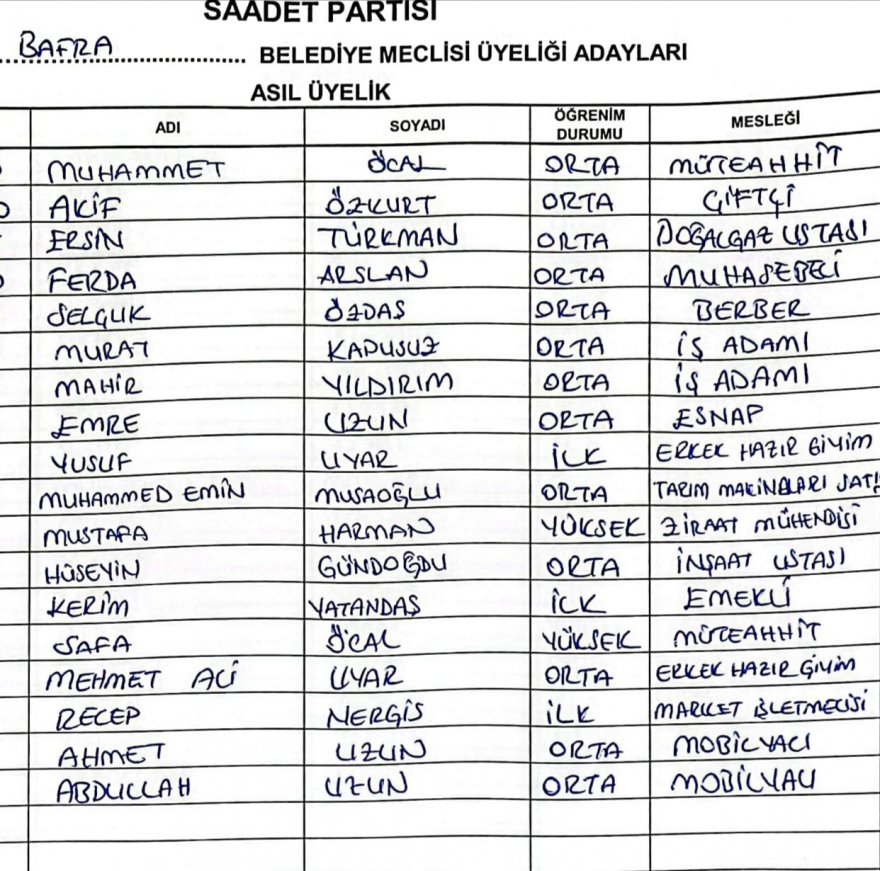 SAADET PARTİSİ
BAFRA BELEDİYE MECLİSİ ÜYELİĞİ ADAYLARI
ASIL ÜYELİK
ADI SOYADI ÖĞRENİM DURUMU MESLEĞİ
MUHAMMET ÖCAL ORTA MÜTEAHHİT
AKİF ÖZKURT ORTA ÇİFTÇİ
ERSİN TÜRKMAN ORTA DOĞALGAZ USTASI
FERDA ARSLAN ORTA MUHASEBECİ
SELÇUK ÖZDAŞ ORTA BERBER
MURAT KAPUSUZ ORTA İŞ ADAMI
MAHİR YILDIRIM ORTA İŞ ADAMI
EMRE UZUN ORTA ESNAP
YUSUF UYAR İLK ERKEK HAZIR GİYİM
MUHAMMED EMİN MUSAOĞLU ORTA TARIM MAKİNALARI SATIŞ
MUSTAFA HARMAN YÜKSEK ZİRAAT MÜHENDİSİ
HÜSEYİN GÜNDOĞDU ORTA İNŞAAT USTASI
KERİM VATANDAŞ İLK EMEKLİ
SAFA ÖCAL YÜKSEK MÜTEAHHİT
MEHMET ALİ UYAR ORTA ERKEK HAZIR GİYİM
RECEP NERGİS İLK MARKET İŞLETMECİSİ
AHMET UZUN ORTA MOBİLYACI
ABDULLAH UZUN ORTA MOBİLYACI